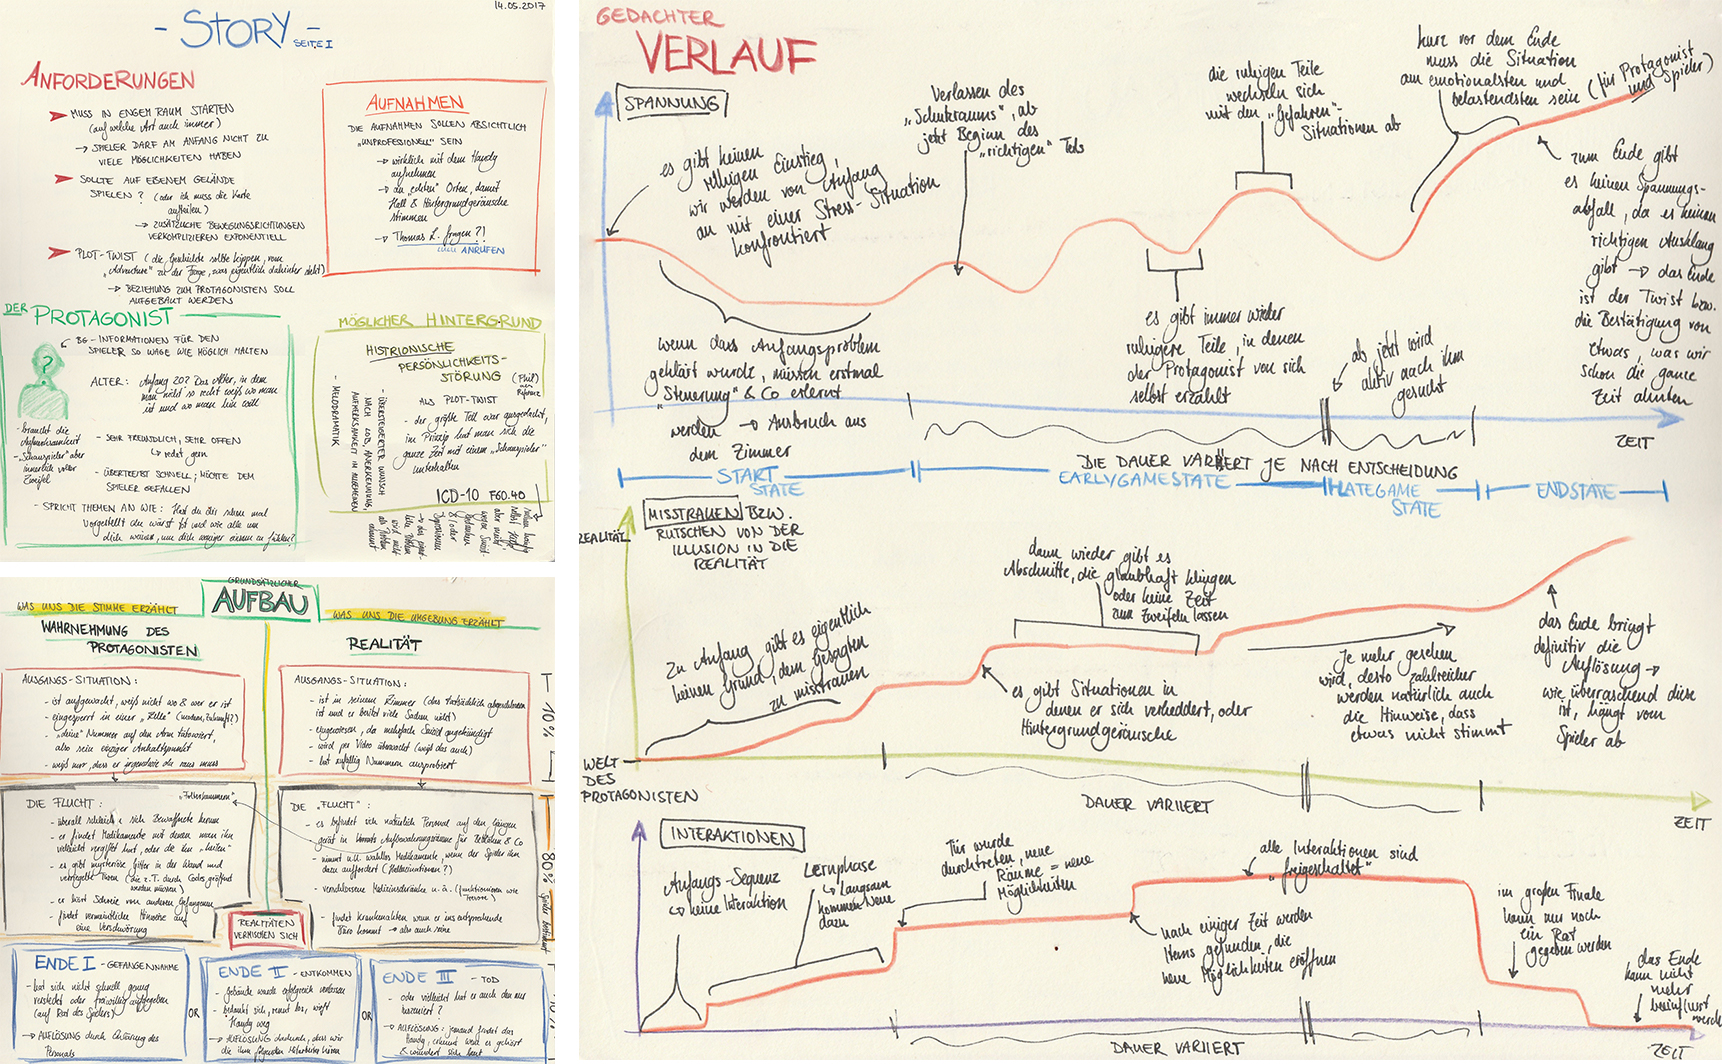 14.05.2017
- STORY -
SEITE I
ANFORDERUNGEN
MUSS IN ENGEM RAUM STARTEN
(auf welche Art auch immer)
→ SPIELER DARF AM ANFANG NICHT ZU
VIELE MÖGLICHKEITEN HABEN
SOLLTE AUF EBENEM GELÄNDE
SPIELEN? (oder ich muss die Karte
aufteilen)
→ ZUSÄTZLICHE BEWEGUNGSRICHTUNGEN
VERKOMPLIZIEREN EXPONENTIELL
PLOT-TWIST (die Geschichte sollte kippen, vom
„Adventure“ zu der Frage, was eigentlich dahinter steckt)
→ BEZIEHUNG ZUM PROTAGONISTEN SOLL
AUFGEBAUT WERDEN
AUFNAHMEN
DIE AUFNAHMEN SOLLEN ABSICHTLICH
„UNPROFESSIONELL“ SEIN
→ wirklich mit dem Handy
aufnehmen
→ an „echten“ Orten, damit
Hall & Hintergrundgeräusche
stimmen
→ Thomas L. fragen?!
ANRUFEN
DER PROTAGONIST
BG-INFORMATIONEN FÜR DEN
SPIELER SO WAGE WIE MÖGLICH HALTEN
?
ALTER: Anfang 20? Das Alter, in dem
man nicht so recht weiß wo man
ist und wo man hin will
- braucht die
Aufmerksamkeit
- „Schauspieler“ aber
innerlich voller
Zweifel
- SEHR FREUNDLICH, SEHR OFFEN
↳ redet gern
- ÜBERTREIBT SCHNELL, MÖCHTE DEM
SPIELER GEFALLEN
- SPRICHT THEMEN AN WIE: Hast du dir schon mal
vorgestellt du wärst
MÖGLICHER HINTERGRUND
HISTRIONISCHE
PERSÖNLICHKEITS-
STÖRUNG (Phil)
ALS PLOT-TWIST
- der größte Teil war ausgedacht,
im Prinzip hat man sich die
ganze Zeit mit einem „Schauspieler“
unterhalten
- ÜBERSTEIGERTER WUNSCH
NACH LOB, ANERKENNUNG,
AUFMERKSAMKEIT IM ALLGEMEINEN
- MELODRAMATIK
ICD-10 F60.40
GRUNDSÄTZLICHER
AUFBAU
WAS UNS DIE STIMME ERZÄHLT
WAS UNS DIE UMGEBUNG ERZÄHLT
WAHRNEHMUNG DES
PROTAGONISTEN
REALITÄT
AUSGANGS-SITUATION:
- ist aufgewacht, weiß nicht wo & wer er ist
- eingesperrt in einer „Zelle“
- „deine“ Nummer auf den Arm tätowiert,
also sein einziger Anhaltspunkt
- weiß nur, dass er irgendwie da raus muss
AUSGANGS-SITUATION:
- ist in seinem Zimmer (das tatsächlich abgeschlossen
ist und er besitzt viele Sachen nicht)
- eingewiesen, da mehrfach Suizid angekündigt
- wird per Video überwacht (weiß das auch)
- hat zufällig Nummern ausprobiert
10%
DIE FLUCHT:
„Folterkammern“
- überall schleichen sich Bewaffnete herum
- er findet Medikamente mit denen man ihn
vielleicht vergiftet hat, oder die ihn „heilen“
- es gibt mysteriöse Gitter in der Wand und
verriegelte Türen (die z.T. durch Codes geöffnet
werden müssen)
- er hört Schreie von anderen Gefangenen
- findet vermeintliche Hinweise auf
eine Verschwörung
DIE „FLUCHT“:
- es befindet sich natürlich Personal auf den Gängen
- gerät in Aufbewahrungsräume für
- nimmt u.U. wahllos Medikamente, wenn der Spieler ihn
dazu auffordert (Halluzinationen?)
- verschlossene Medizinschränke u.ä. (funktionieren wie
Tresore)
- findet Krankenakten wenn er ins entsprechende
Büro kommt → also auch seine
80%
REALITÄTEN
VERMISCHEN SICH
ENDE I - GEFANGENNAHME
- hat sich nicht schnell genug
versteckt oder freiwillig aufgegeben
(auf Rat des Spielers)
→ AUFLÖSUNG durch Erklärung des
Personals
OR
ENDE II - ENTKOMMEN
- Gebäude wurde erfolgreich verlassen
- bedankt sich, rennt los, wirft
Handy weg
→ AUFLÖSUNG dadurch, dass wir
die ihm folgenden Mitarbeiter hören
OR
ENDE III - TOD
- oder vielleicht hat er auch den nur
inszeniert?
→ AUFLÖSUNG: jemand findet das
Handy, erkennt wem es gehört
& wundert sich laut
10%
GEDACHTER
VERLAUF
SPANNUNG
es gibt keinen
ruhigen Einstieg,
wir werden von Anfang
an mit einer Stress-Situation
konfrontiert
Verlassen des
„Schutzraums“, ab
jetzt Beginn des
„richtigen“ Teils
die ruhigen Teile
wechseln sich
mit den „Gefahren“-
Situationen ab
kurz vor dem Ende
muss die Situation
am emotionalsten und
belastendsten sein (für Protagonist
und Spieler)
zum Ende gibt
es keinen Spannungs-
abfall, da es keinen
richtigen Ausklang
gibt → das Ende
ist der Twist bzw.
die Bestätigung von
etwas, was wir
schon die ganze
Zeit ahnten
wenn das Anfangsproblem
geklärt wurde, müssen erstmal
„Steuerung“ & Co erlernt
werden → Ausbruch aus
dem Zimmer
es gibt immer wieder
ruhigere Teile, in denen
der Protagonist von sich
selbst erzählt
ab jetzt wird
aktiv nach ihm
gesucht
ZEIT
DIE DAUER VARIIERT JE NACH ENTSCHEIDUNG
START
STATE
EARLYGAMESTATE
LATEGAME
STATE
ENDSTATE
REALITÄT
MISSTRAUEN BZW.
RUTSCHEN VON DER
ILLUSION IN DIE
REALITÄT
Zu Anfang gibt es eigentlich
keinen Grund, dem Gesagten
zu misstrauen
dann wieder gibt es
Abschnitte, die glaubhaft klingen
oder keine Zeit
zum Zweifeln lassen
es gibt Situationen in
denen er sich verheddert, oder
Hintergrundgeräusche
Je mehr gesehen
wird, desto zahlreicher
werden natürlich auch
die Hinweise, dass
etwas nicht stimmt
das Ende bringt
definitiv die
Auflösung →
wie überraschend diese
ist, hängt vom
Spieler ab
WELT
DES
PROTAGONISTEN
DAUER VARIIERT
ZEIT
INTERAKTIONEN
Anfangs-Sequenz
↳ keine Interaktion
Lernphase
↳ langsam
kommen Neue
dazu
Tür wurde
durchtreten, neue
Räume = neue
Möglichkeiten
alle Interaktionen sind
„freigeschaltet“
nach einiger Zeit werden
Items gefunden, die
neue Möglichkeiten eröffnen
im großen Finale
kann nur noch
ein Rat
gegeben werden
das Ende
kann nicht
mehr
beeinflusst
werden
DAUER VARIIERT
ZEIT